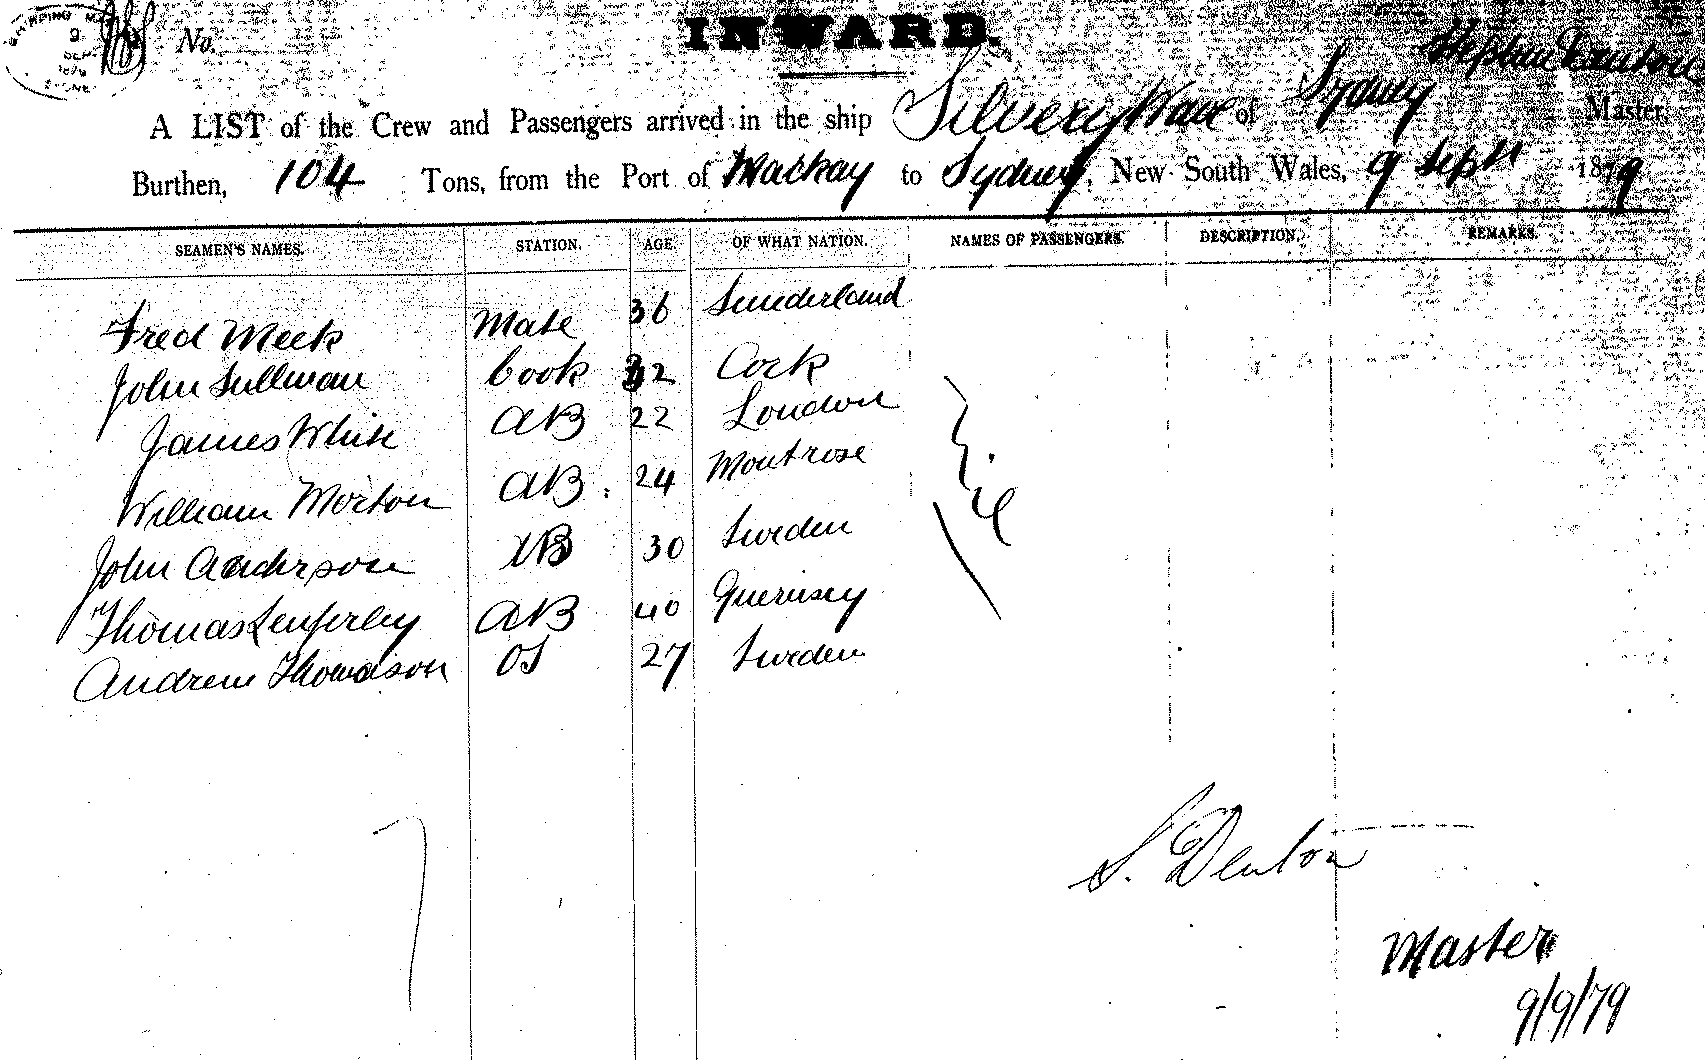 SHIPPING
9
SEP
1879
No.
INWARD.
Stephen Denton
A LIST of the Crew and Passengers arrived in the ship Silvery Wave of Sydney Master,
Burthen, 104 Tons, from the Port of Mackay to Sydney, New South Wales, 9 Sept 1879
SEAMEN'S NAMES. STATION. AGE. OF WHAT NATION. NAMES OF PASSENGERS. DESCRIPTION. REMARKS.
Fred Meek Mate 36 Sunderland
John Sullivan Cook 32 Cork
James White AB 22 London
William Morton AB. 24 Montrose
John Anderson AB 30 Sweden
Thomas AB 40 Guernsey
Andrew Thomason OS 27 Sweden
Nil
7
S. Denton
Master
9/9/79